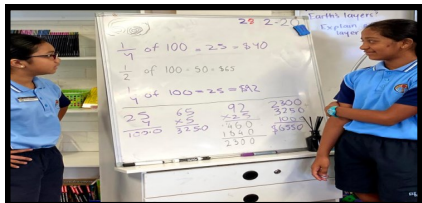 22 2-20
Earth's layers
Explain
layer
1/4 of 100 = 25 = $40
1/2 of 100 = 50 = $65
1/4 of 100 = 25 = $92
25
65
x5
3250
92
x25
460
1840
2300
2300
3250
$6550